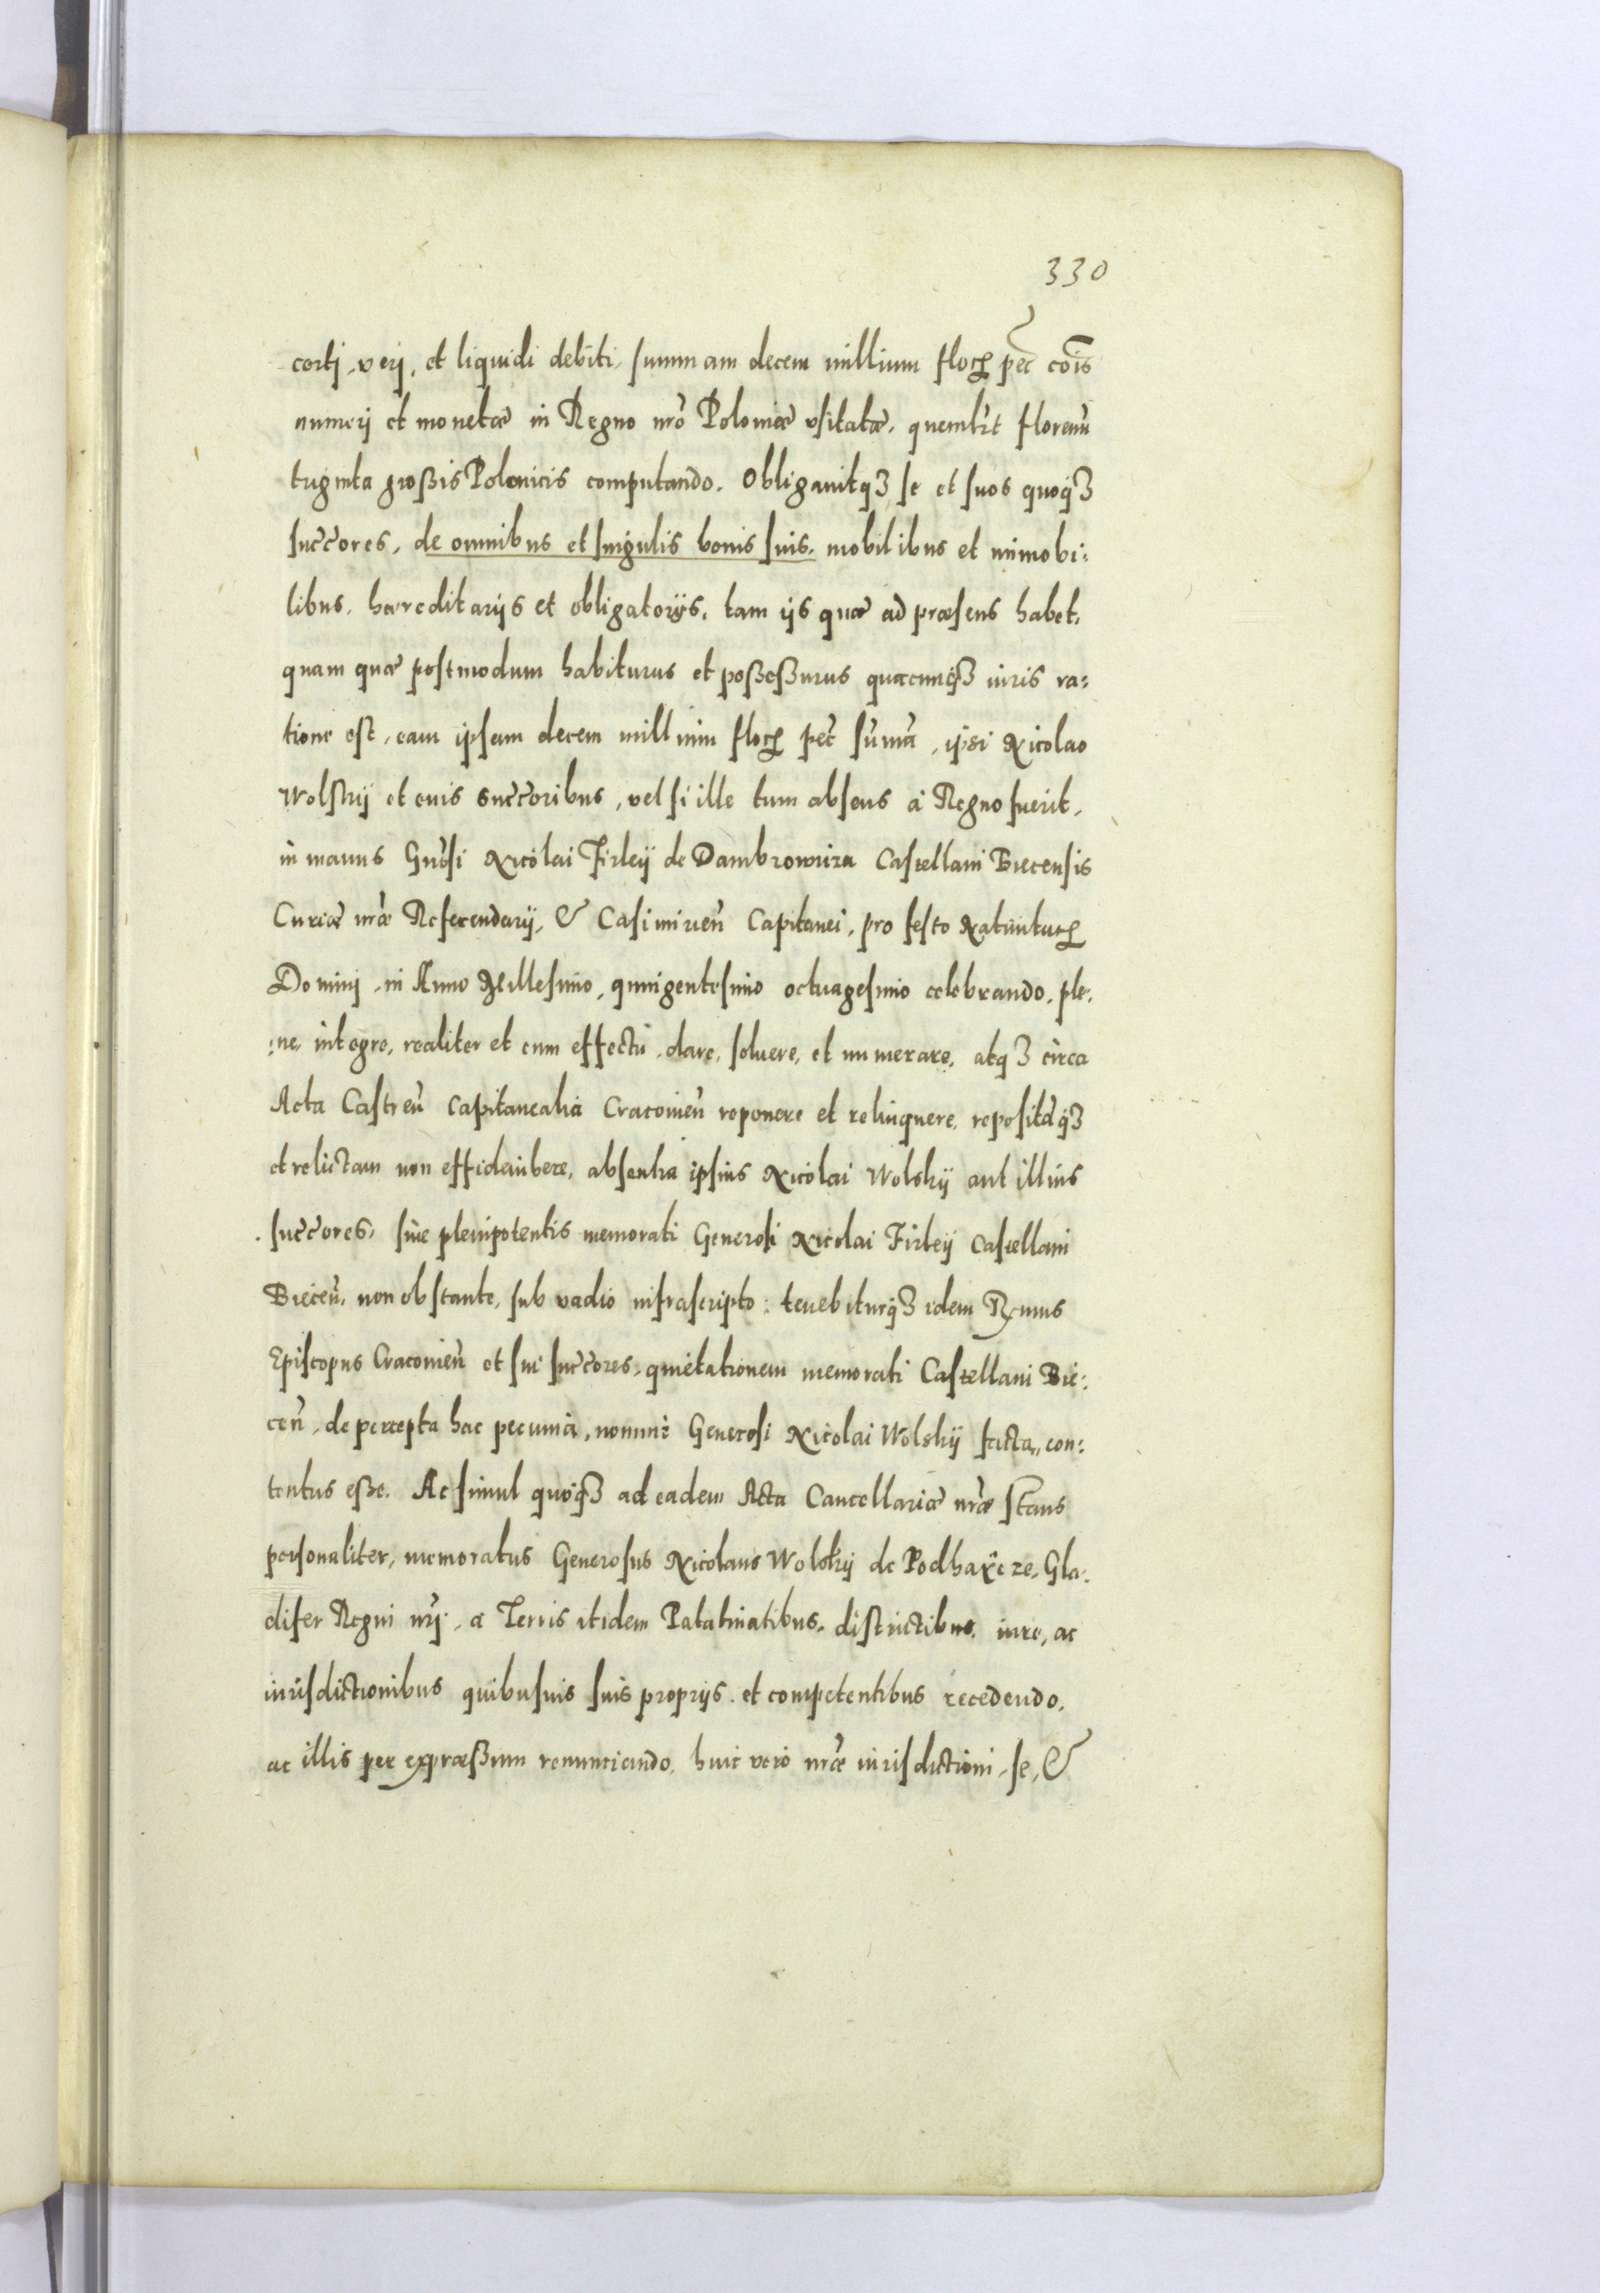 330
certj, verj, et liquidi debiti, summam decem millium floꝝ pec̄ cōis
numerj et monetæ in Regno nrō Poloniæ vsitatæ, quemlꝫt florenū
triginta großis Polonicis computando. Obligauitqꝫ se et suos quoqꝫ
succ̄ores, de omnibus et singulis bonis suis, mobilibus et immobi:
libus, hæreditarijs et obligatorijs, tam ijs quæ ad præsens habet,
quam quæ postmodum habiturus et poßeßurus quacunqꝫ iuris ra:
tione est, eam ipsam decem millium floꝝ pec̄ sūmā, ipsi Nicolao
Wolskij et euis succ̄oribus, vel si ille tum absens à Regno fuerit,
in manus Gn̄osi Nicolai Firleij de Dambrowiza Castellani Biecensis
Curiæ nrǣ Referendarij, & Casimirien̄ Capitanei, pro festo Natiuitatꝝ
Dominj, in Anno Millesimo, quingentesimo octuagesimo celebrando, ple:
:ne, integre, realiter et cum effectu, dare, soluere, et numerare, atqꝫ circa
Acta Castren̄ Capitanealia Cracouien̄ reponere et relinquere, repositāqꝫ
et relictam non effidembere, absentia ipsius Nicolai Wolskij aut illius
succ̄ores, siue plenipotentis memorati Generosi Nicolai Firleij Castellani
Biecen̄, non obstante, sub vadio infrascripto: tenebiturqꝫ idem Rm̄us
Episcopus Cracouien̄ et sui succ̄ores, quietationem memorati Castellani Bie:
cen̄, de percepta hac pecunia, nomine Generosi Nicolai Wolskij facta, con:
tentus eße. Ac simul quoqꝫ ad eadem Acta Cancellariæ nrǣ stans
personaliter, memoratus Generosus Nicolaus Wolskij de Podhaÿcze, Gla:
difer Regni nrj̄, a Terris itidem Palatinatibus, districtibus, iure, ac
iurisdictionibus quibusuis suis proprijs et competentibus recedendo,
ac illis per expræßum renunciando, huic vero nrǣ iurisdictioni, se, &